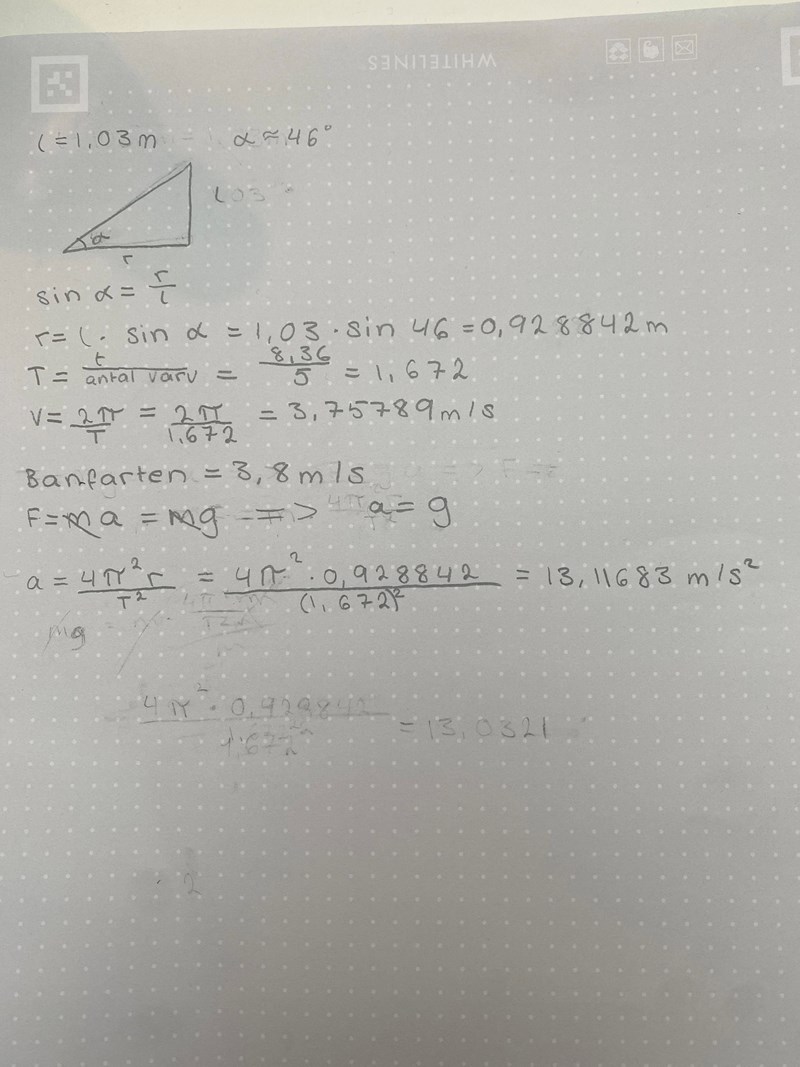 WHITELINES
l = 1,03 m α ≈ 46°
l 03
α
r
sin α = r/l
r = l · sin α = 1,03 · sin 46 = 0,928842 m
T = t/antal varv = 8,36/5 = 1,672
V = 2π/T = 2π/1,672 = 3,75789 m/s
Banfarten = 3,8 m/s
F = ma = mg => a = g
a = 4π²r/T² = 4π² · 0,928842/(1,672)² = 13,11683 m/s²
mg
4π² · 0,928842/1,672² = 13,0321
2